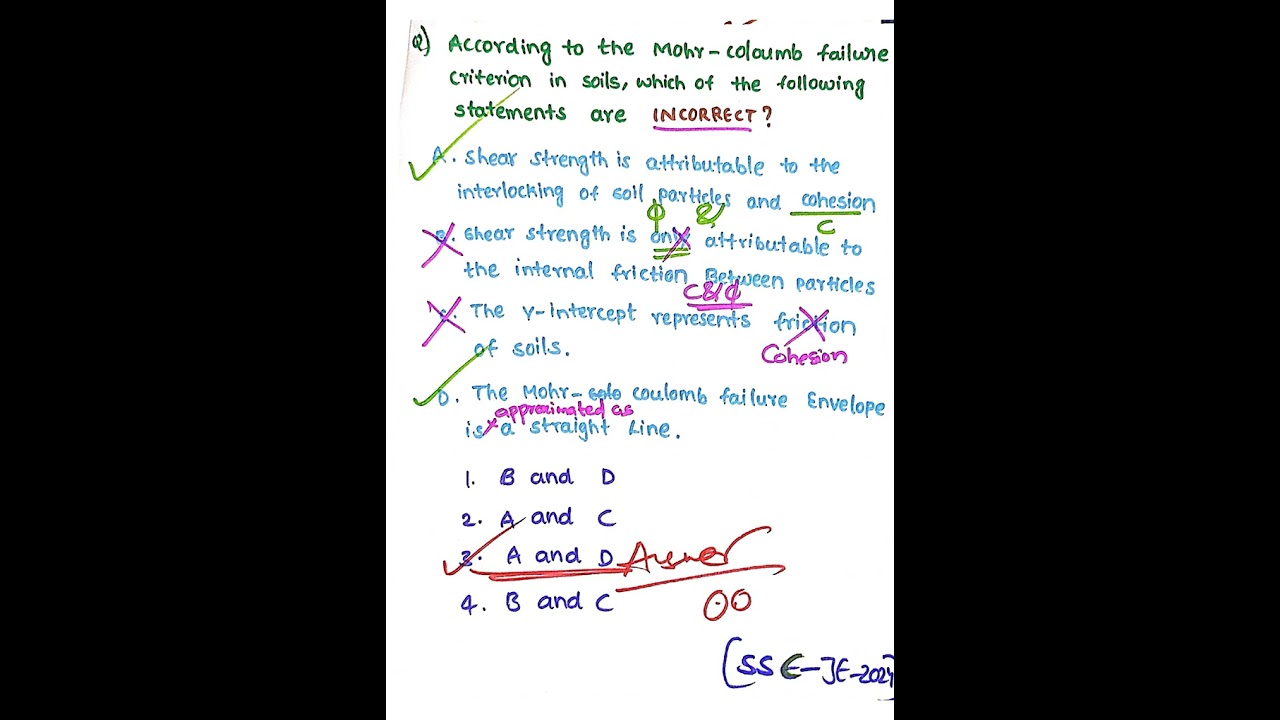 Q) According to the Mohr-coloumb failure
criterion in soils, which of the following
statements are INCORRECT?
A. shear strength is attributable to the
interlocking of soil particles and cohesion
φ & C
B. shear strength is only attributable to
the internal friction Between particles
C & φ
C. The Y-intercept represents friction
of soils.
Cohesion
D. The Mohr-colo coulomb failure Envelope
approximated as
is a straight Line.
1. B and D
2. A and C
3. A and D Answer
4. B and C
[SSC-JE-2024]